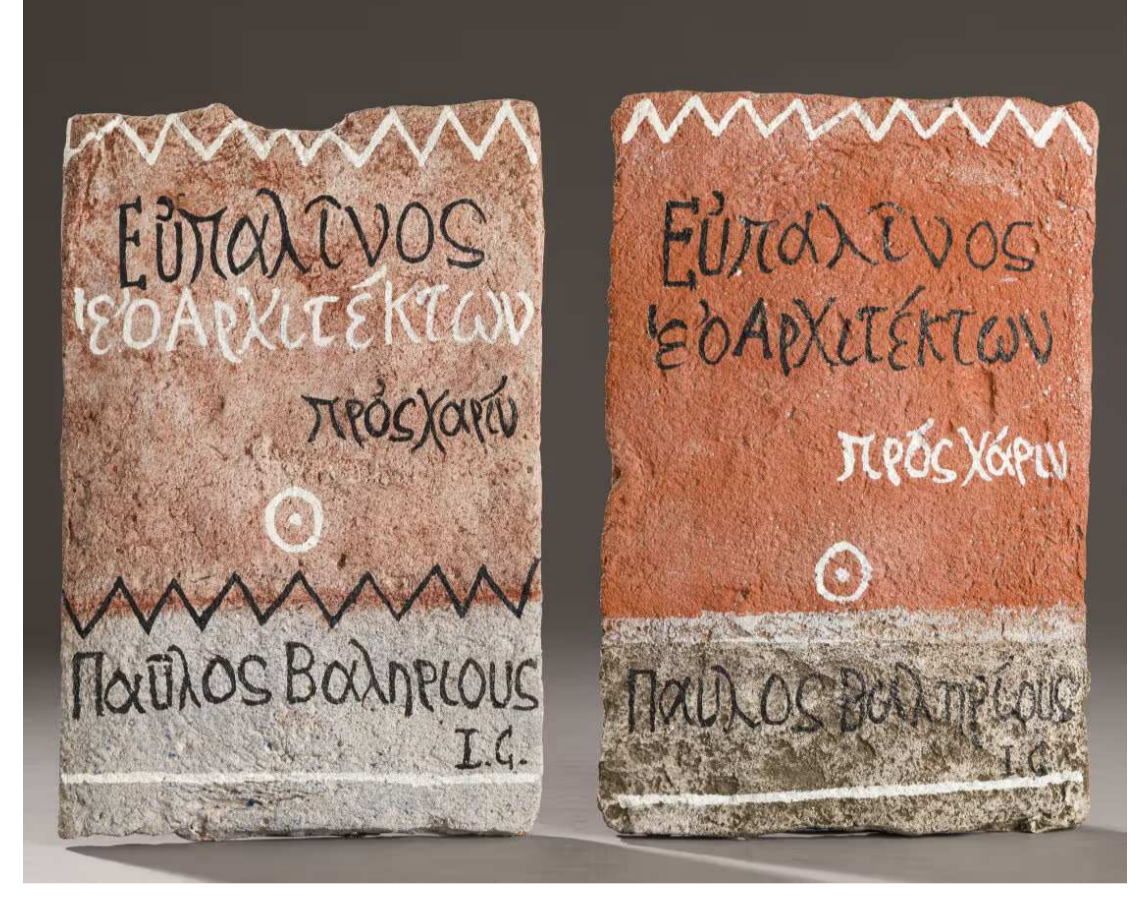 Εὐπαλῖνος
'ε'ὸ Αρχιτέκτων
πρὸς χαρίν
Παῦλος Βαληριους
I.G.
Εὐπαλῖνος
'ε'ὸ Αρχιτέκτων
πρὸς χάριν
Παῦλος Βαληρίους
I G